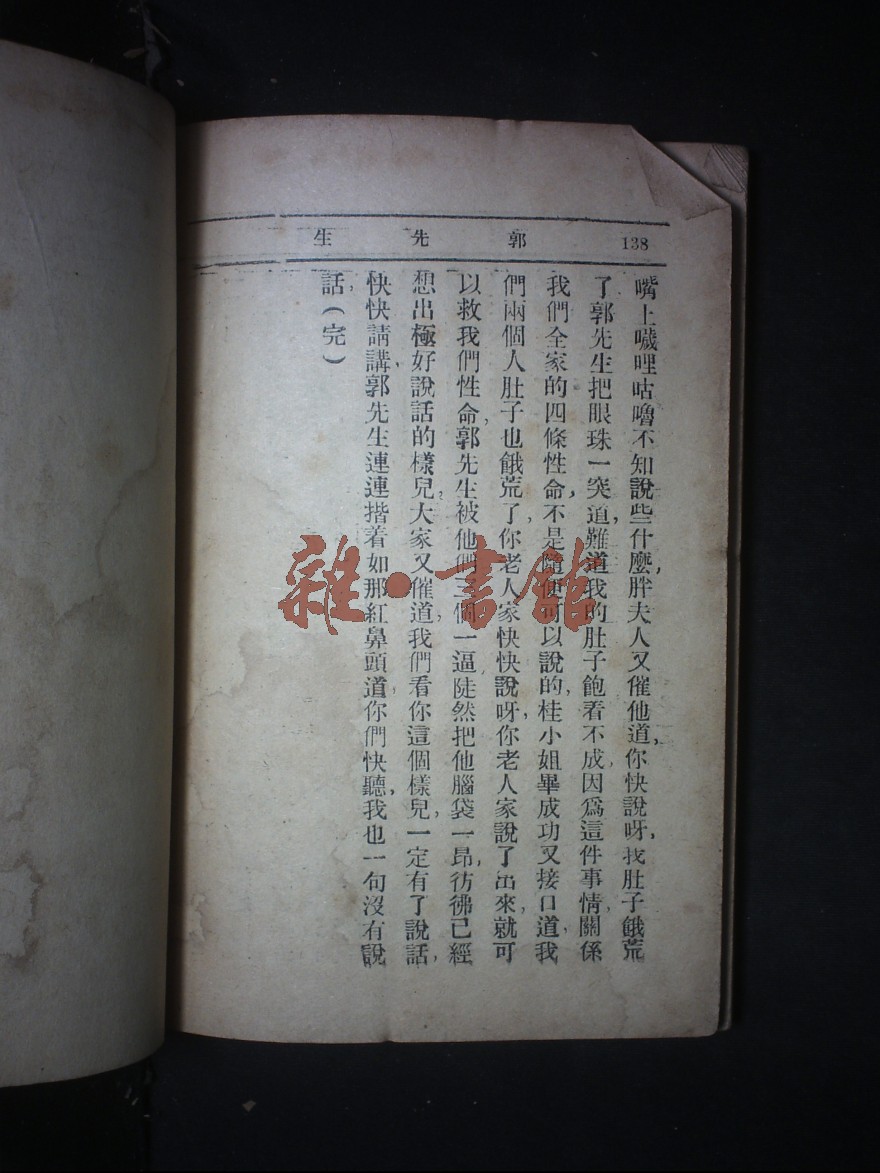 138 郭先生
嘴上嘰哩咕嚕不知說些什麼，胖夫人又催他道，你快說呀，我肚子餓荒
了郭先生把眼珠一突道，難道我的肚子飽着不成，因爲這件事情，關係
我們全家的四條性命，不是隨便可以說的，桂小姐畢成功又接口道，我
們兩個人肚子也餓荒了，你老人家快快說呀，你老人家說了出來，就可
以救我們性命，郭先生被他們三個一逼，陡然把他腦袋一昂，彷彿已經
想出極好說話的樣兒，大家又催道，我們看你這個樣兒，一定有了說話，
快快請講，郭先生連連揩着如那紅鼻頭道，你們快聽，我也一句沒有說
話，（完）
雜·書館